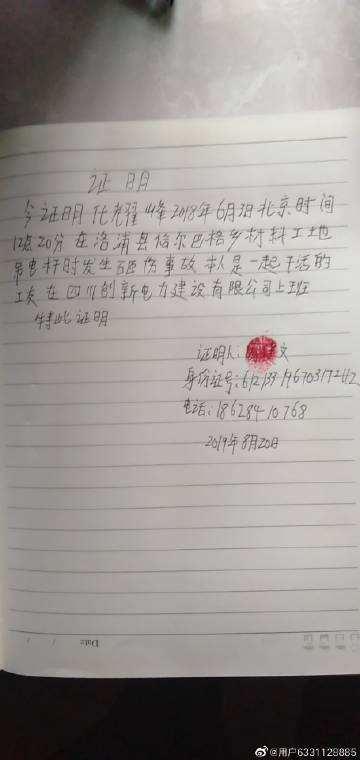 证明
今证明化龙耀峰2018年6月3日北京时间
12点20分在洛浦县恰尔巴格乡材料工地
吊电杆时发生砸伤事故本人是一起干活的
工友在四川创新电力建设有限公司上班
特此证明
证明人: 文
身份证号:
电话:18628410768
2019年8月20日
Date / /
@用户6331128885